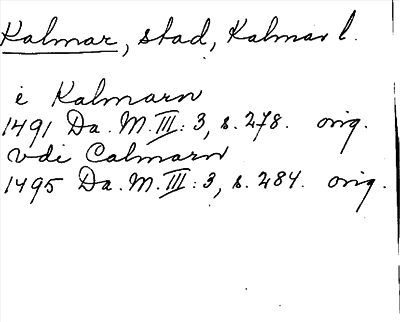 Kalmar, stad, Kalmar l.
i Kalmarn
1491 Da. M. III: 3, s. 278. orig.
vdi Calmarn
1495 Da. M. III: 3, s. 284. orig.